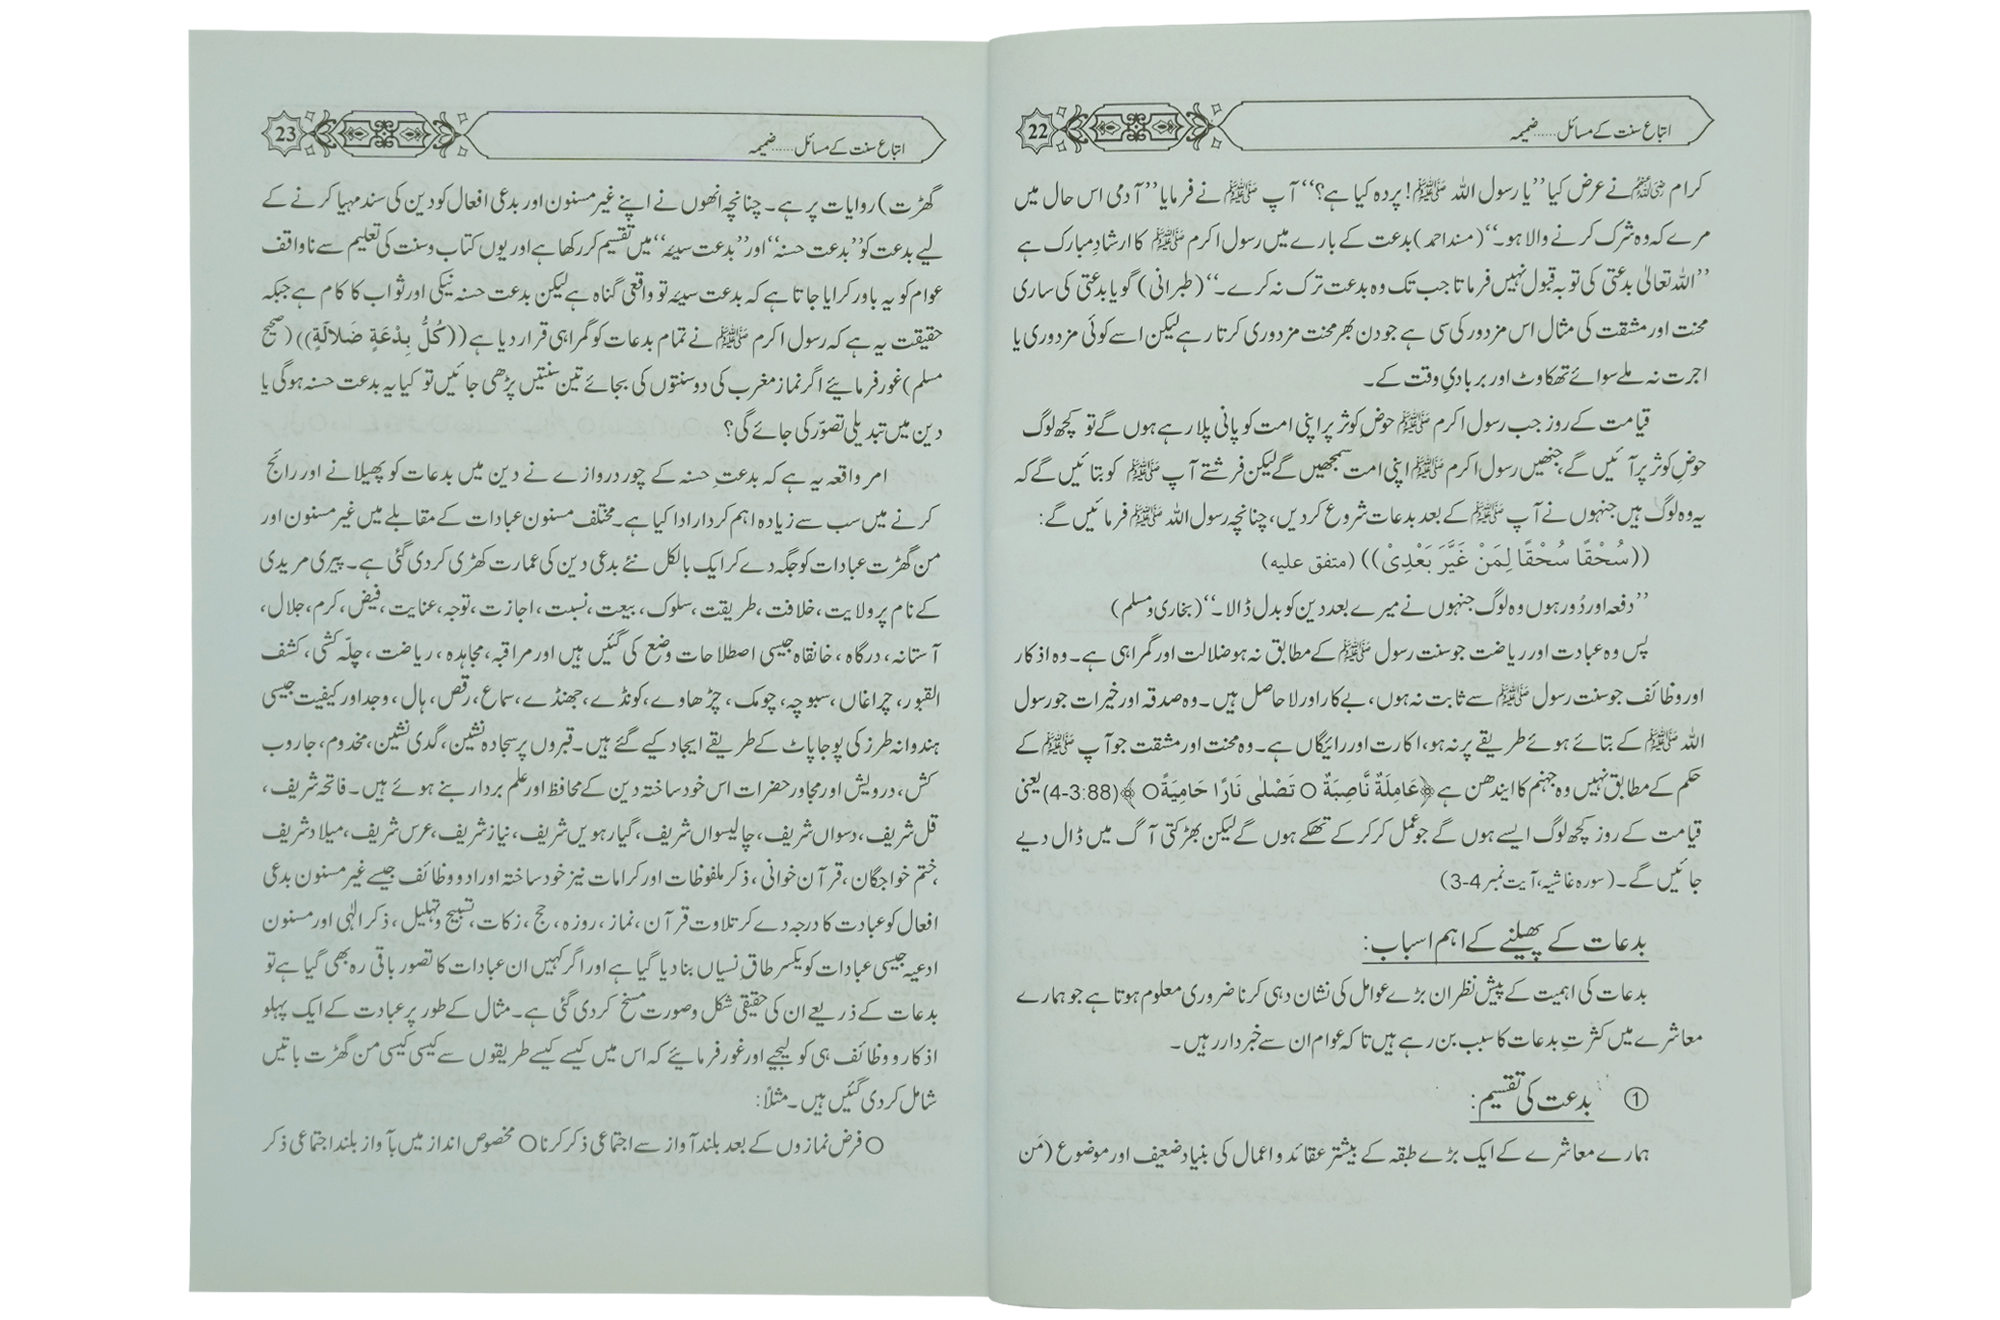 اتباع سنت کے مسائل......ضمیمہ
22
کرام رضی اللہ عنہم نے عرض کیا ’’یا رسول اللہ ﷺ! پردہ کیا ہے؟‘‘ آپ ﷺ نے فرمایا ’’آدمی اس حال میں
مرے کہ وہ شرک کرنے والا ہو۔‘‘ (مسند احمد) بدعت کے بارے میں رسول اکرم ﷺ کا ارشادِ مبارک ہے
’’اللہ تعالیٰ بدعتی کی توبہ قبول نہیں فرماتا جب تک وہ بدعت ترک نہ کرے۔‘‘ (طبرانی) گویا بدعتی کی ساری
محنت اور مشقت کی مثال اس مزدور کی سی ہے جو دن بھر محنت مزدوری کرتا رہے لیکن اسے کوئی مزدوری یا
اجرت نہ ملے سوائے تھکاوٹ اور بربادیِ وقت کے۔
قیامت کے روز جب رسول اکرم ﷺ حوضِ کوثر پر اپنی امت کو پانی پلا رہے ہوں گے تو کچھ لوگ
حوضِ کوثر پر آئیں گے، جنھیں رسول اکرم ﷺ اپنی امت سمجھیں گے لیکن فرشتے آپ ﷺ کو بتائیں گے کہ
یہ وہ لوگ ہیں جنہوں نے آپ ﷺ کے بعد بدعات شروع کر دیں، چنانچہ رسول اللہ ﷺ فرمائیں گے:
((سُحْقًا سُحْقًا لِمَنْ غَيَّرَ بَعْدِيْ)) (متفق علیہ)
’’دفعہ اور دُور ہوں وہ لوگ جنہوں نے میرے بعد دین کو بدل ڈالا۔‘‘ (بخاری و مسلم)
پس وہ عبادت اور ریاضت جو سنت رسول ﷺ کے مطابق نہ ہو ضلالت اور گمراہی ہے۔ وہ اذکار
اور وظائف جو سنت رسول ﷺ سے ثابت نہ ہوں، بے کار اور لا حاصل ہیں۔ وہ صدقہ اور خیرات جو رسول
اللہ ﷺ کے بتائے ہوئے طریقے پر نہ ہو، اکارت اور رائیگاں ہے۔ وہ محنت اور مشقت جو آپ ﷺ کے
حکم کے مطابق نہیں وہ جہنم کا ایندھن ہے ﴿عَامِلَةٌ نَّاصِبَةٌ ○ تَصْلٰی نَارًا حَامِیَةً ○﴾ (4-3:88) یعنی
قیامت کے روز کچھ لوگ ایسے ہوں گے جو عمل کر کر کے تھکے ہوں گے لیکن بھڑکتی آگ میں ڈال دیے
جائیں گے۔ (سورہ غاشیہ، آیت نمبر 4-3)
بدعات کے پھیلنے کے اہم اسباب:
بدعات کی اہمیت کے پیش نظر ان بڑے عوامل کی نشان دہی کرنا ضروری معلوم ہوتا ہے جو ہمارے
معاشرے میں کثرتِ بدعات کا سبب بن رہے ہیں تا کہ عوام ان سے خبردار رہیں۔
① بدعت کی تقسیم:
ہمارے معاشرے کے ایک بڑے طبقہ کے بیشتر عقائد و اعمال کی بنیاد ضعیف اور موضوع (من
اتباع سنت کے مسائل......ضمیمہ
23
گھڑت) روایات پر ہے۔ چنانچہ انھوں نے اپنے غیر مسنون اور بدعی افعال کو دین کی سند مہیا کرنے کے
لیے بدعت کو ’’بدعت حسنہ‘‘ اور ’’بدعت سیئہ‘‘ میں تقسیم کر رکھا ہے اور یوں کتاب و سنت کی تعلیم سے ناواقف
عوام کو یہ باور کرایا جاتا ہے کہ بدعت سیئہ تو واقعی گناہ ہے لیکن بدعت حسنہ نیکی اور ثواب کا کام ہے جبکہ
حقیقت یہ ہے کہ رسول اکرم ﷺ نے تمام بدعات کو گمراہی قرار دیا ہے ((كُلُّ بِدْعَةٍ ضَلَالَةٍ)) (صحیح
مسلم) غور فرمائیے اگر نماز مغرب کی دو سنتوں کی بجائے تین سنتیں پڑھی جائیں تو کیا یہ بدعت حسنہ ہوگی یا
دین میں تبدیلی تصوّر کی جائے گی؟
امر واقعہ یہ ہے کہ بدعتِ حسنہ کے چور دروازے نے دین میں بدعات کو پھیلانے اور رائج
کرنے میں سب سے زیادہ اہم کردار ادا کیا ہے۔ مختلف مسنون عبادات کے مقابلے میں غیر مسنون اور
من گھڑت عبادات کو جگہ دے کر ایک بالکل نئے بدعی دین کی عمارت کھڑی کر دی گئی ہے۔ پیری مریدی
کے نام پر ولایت، خلافت، طریقت، سلوک، بیعت، نسبت، اجازت، توجہ، عنایت، فیض، کرم، جلال،
آستانہ، درگاہ، خانقاہ جیسی اصطلاحات وضع کی گئیں ہیں اور مراقبہ، مجاہدہ، ریاضت، چلّہ کشی، کشف
القبور، چراغاں، سبوچہ، چومک، چڑھاوے، کونڈے، جھنڈے، سماع، رقص، ہال، وجد اور کیفیت جیسی
ہندوانہ طرز کی پوجا پاٹ کے طریقے ایجاد کیے گئے ہیں۔ قبروں پر سجادہ نشین، گدی نشین، مخدوم، جاروب
کش، درویش اور مجاور حضرات اس خود ساختہ دین کے محافظ اور علم بردار بنے ہوئے ہیں۔ فاتحہ شریف،
قل شریف، دسواں شریف، چالیسواں شریف، گیارہویں شریف، نیاز شریف، عرس شریف، میلاد شریف
، ختم خواجگان، قرآن خوانی، ذکر ملفوظات اور کرامات نیز خود ساختہ اوراد و وظائف جیسے غیر مسنون بدعی
افعال کو عبادت کا درجہ دے کر تلاوت قرآن، نماز، روزہ، حج، زکات، تسبیح و تہلیل، ذکر الٰہی اور مسنون
ادعیہ جیسی عبادات کو یکسر طاقِ نسیاں بنا دیا گیا ہے اور اگر کہیں ان عبادات کا تصور باقی رہ بھی گیا ہے تو
بدعات کے ذریعے ان کی حقیقی شکل و صورت مسخ کر دی گئی ہے۔ مثال کے طور پر عبادت کے ایک پہلو
اذکار و وظائف ہی کو لیجیے اور غور فرمائیے کہ اس میں کیسے کیسے طریقوں سے کیسی کیسی من گھڑت باتیں
شامل کر دی گئیں ہیں۔ مثلاً:
○ فرض نمازوں کے بعد بلند آواز سے اجتماعی ذکر کرنا ○ مخصوص انداز میں بآواز بلند اجتماعی ذکر